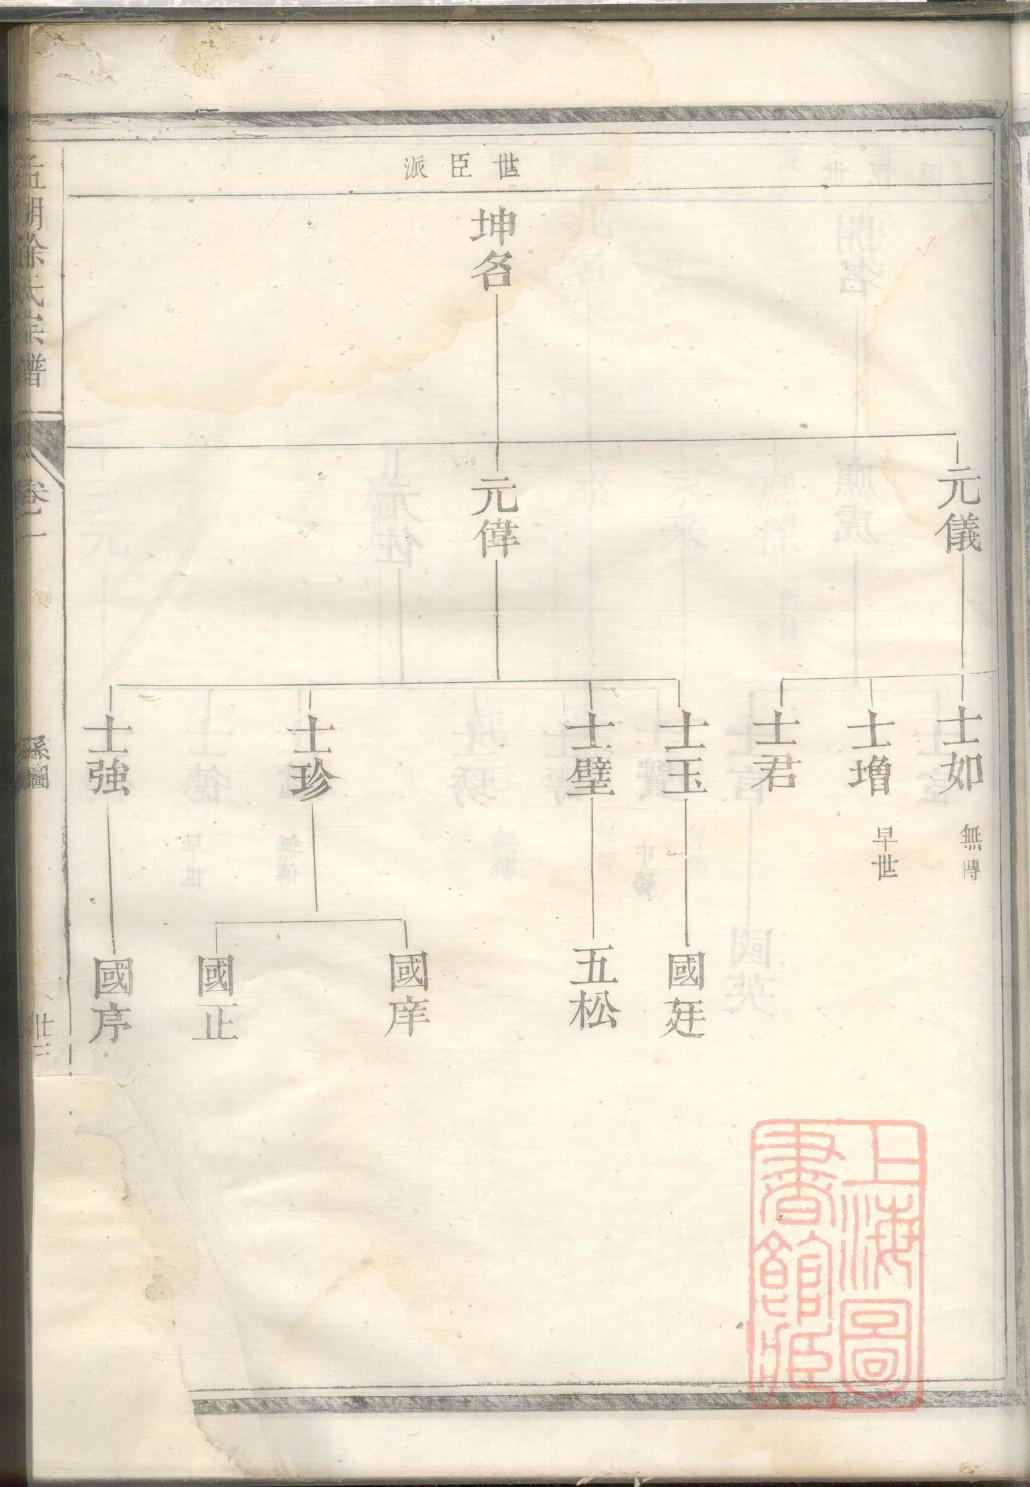 世臣派
坤名
元儀
元偉
士如
無傳
士增
早世
士君
士玉
士璧
士珍
士強
國廷
五松
國庠
國正
國序
孟湖徐氏宗譜
卷二
系圖
廿三
上海圖
書館藏